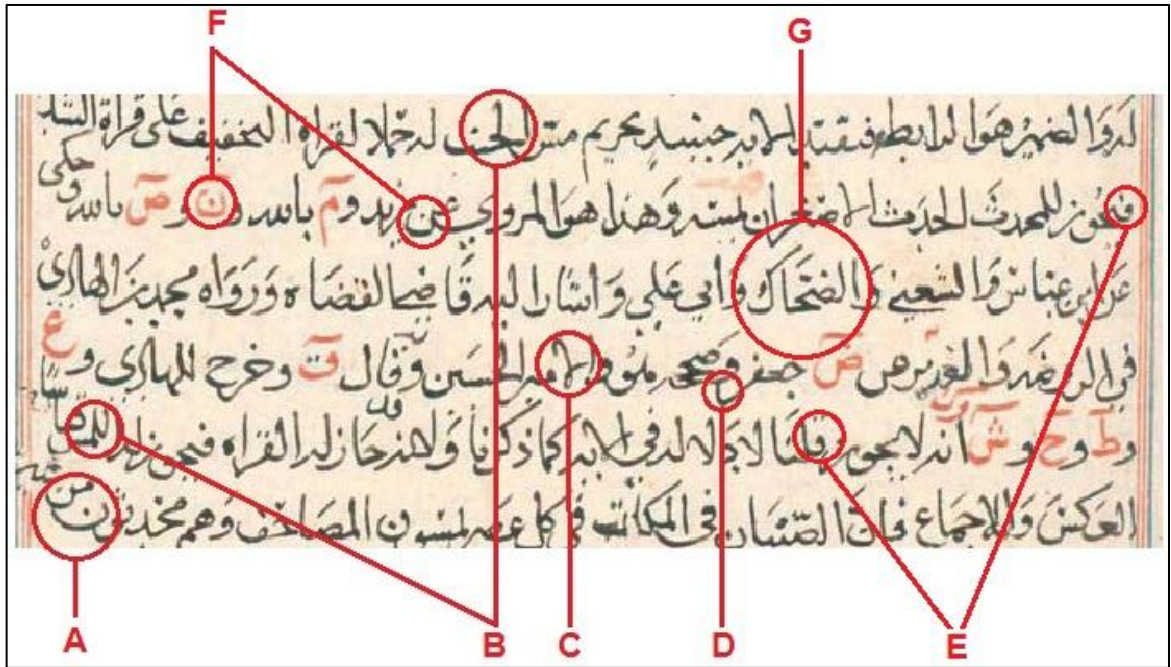 F G
لدوا الضمير هو الرابط فيقتد بحريم متن الجنب له حملا لقراة التخفيف على قراة التشد
فيجوز للمحدث الحدث الاصغر ان يمسه وهذا هو المروي عن زيد و م بالله و ن و ص بالله وحكى
عن ابن عباس والشعبي والضحاك وابي علي واشار اليه قاضي القضاه ورواه محمد بن الهادي
في والغدير عن ص جعفر وصححه الامير الحسين وقال ق وخرج للهادي و ع
و ط و ح و ش انه لا يجوز قلنا لا دلاله له في الايه كما ذكرنا ولانه جاز له القراه فيجوز له المس
العكس والاجماع فان الصبيان في المكاتب في كل عصر يمسون المصاحف وهم محدثون من
A B C D E